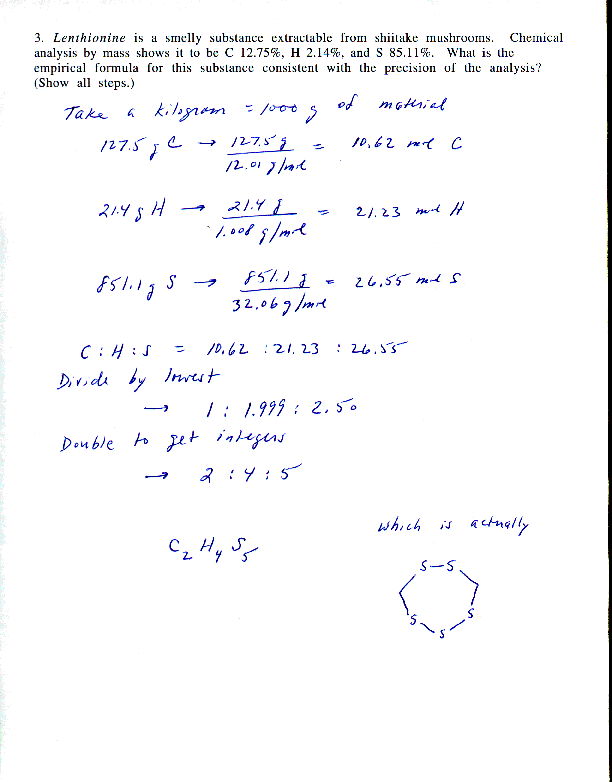 3. Lenthionine is a smelly substance extractable from shiitake mushrooms. Chemical
analysis by mass shows it to be C 12.75%, H 2.14%, and S 85.11%. What is the
empirical formula for this substance consistent with the precision of the analysis?
(Show all steps.)
Take a kilogram = 1000 g of material
127.5 g C → 127.5 g / 12.01 g/mol = 10.62 mol C
21.4 g H → 21.4 g / 1.008 g/mol = 21.23 mol H
851.1 g S → 851.1 g / 32.06 g/mol = 26.55 mol S
C : H : S = 10.62 : 21.23 : 26.55
Divide by lowest
→ 1 : 1.999 : 2.50
Double to get integers
→ 2 : 4 : 5
which is actually
C2 H4 S5
S—S
S S
S